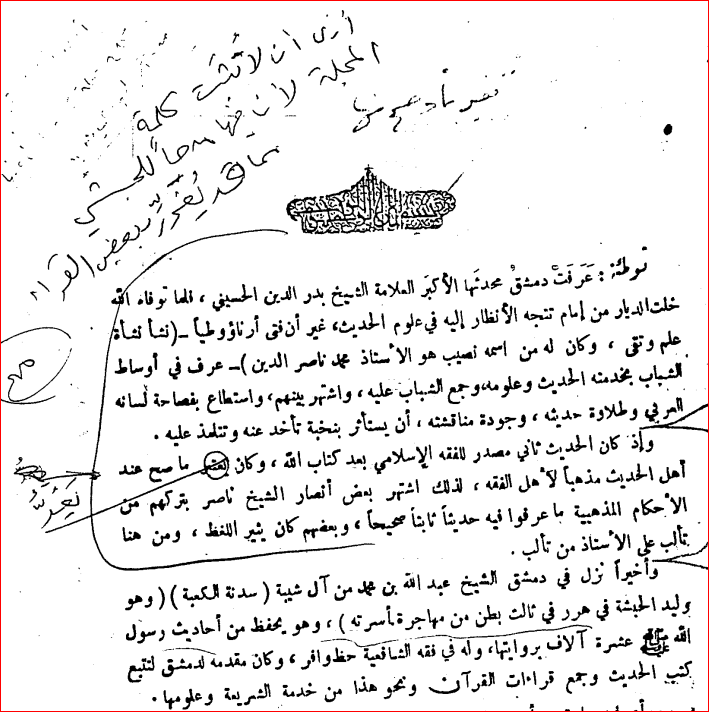 أرى ان لا تُثبت كلمة
المجلة لان فيها مدحاً للحبشي
مما قد يُغَرِّر ببعض القراء
توطئة : عَرَفَتْ دمشقُ محدثَها الأكبَر العلامة الشيخ بدر الدين الحسيني ، فلما توفاه الله
خلت الديار من إمام تتجه الأنظار إليه في علوم الحديث، غير أن فتى أرناؤوطياً ـ (نشأ نشأة
علم وتقى ، وكان له من اسمه نصيب هو الأستاذ محمد ناصر الدين) ـ عرف في أوساط
الشباب بخدمته الحديث وعلومه، وجمع الشباب عليه ، واشتهر بينهم، واستطاع بفصاحة لسانه
العربي وطلاوة حديثه ، وجودة مناقشته ، أن يستأثر بنخبة تأخذ عنه وتتلمذ عليه .
وإذ كان الحديث ثاني مصدر للفقه الإسلامي بعد كتاب الله ، وكان يعتبر ما صح عند
أهل الحديث مذهباً لأهل الفقه ، لذلك اشتهر بعض أنصار الشيخ ناصر بتركهم من
الأحكام المذهبية ما عرفوا فيه حديثاً ثابتاً صحيحاً ، وبعضهم كان يثير اللغط ، ومن هنا
تألب على الأستاذ من تألب .
وأخيراً نزل في دمشق الشيخ عبد الله بن محمد من آل شيبة ( سدنة الكعبة ) ( وهو
وليد الحبشة في هرر في ثالث بطن من مهاجرة بأسرته ) ، وهو يحفظ من أحاديث رسول
الله ﷺ عشرة آلاف بروايتها، وله في فقه الشافعية حظ وافر ، وكان مقدمه لدمشق لتتبع
كتب الحديث وجمع قراءات القرآن ونحو هذا من خدمة الشريعة وعلومها .